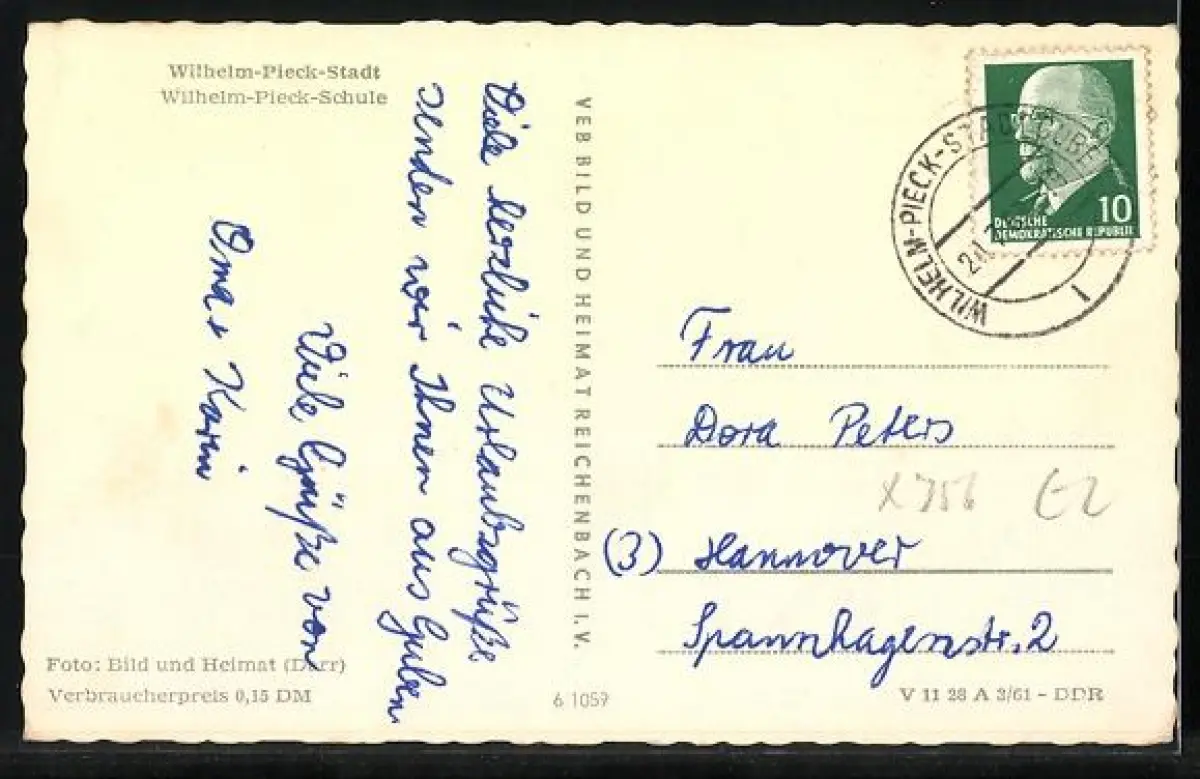 Wilhelm-Pieck-Stadt
Wilhelm-Pieck-Schule
Viele herzliche Urlaubsgrüße
senden wir Ihnen aus Guben
Viele Grüße von
Oma + Karin
VEB BILD UND HEIMAT REICHENBACH I. V.
WILHELM-PIECK-STADT GUBEN
1
10
DEUTSCHE
DEMOKRATISCHE REPUBLIK
Frau
Dora Peters
(3) Hannover
Spannhagenstr. 2
Foto: Bild und Heimat (Darr)
Verbraucherpreis 0,15 DM
6 1059
V 11 28 A 3/61 - DDR